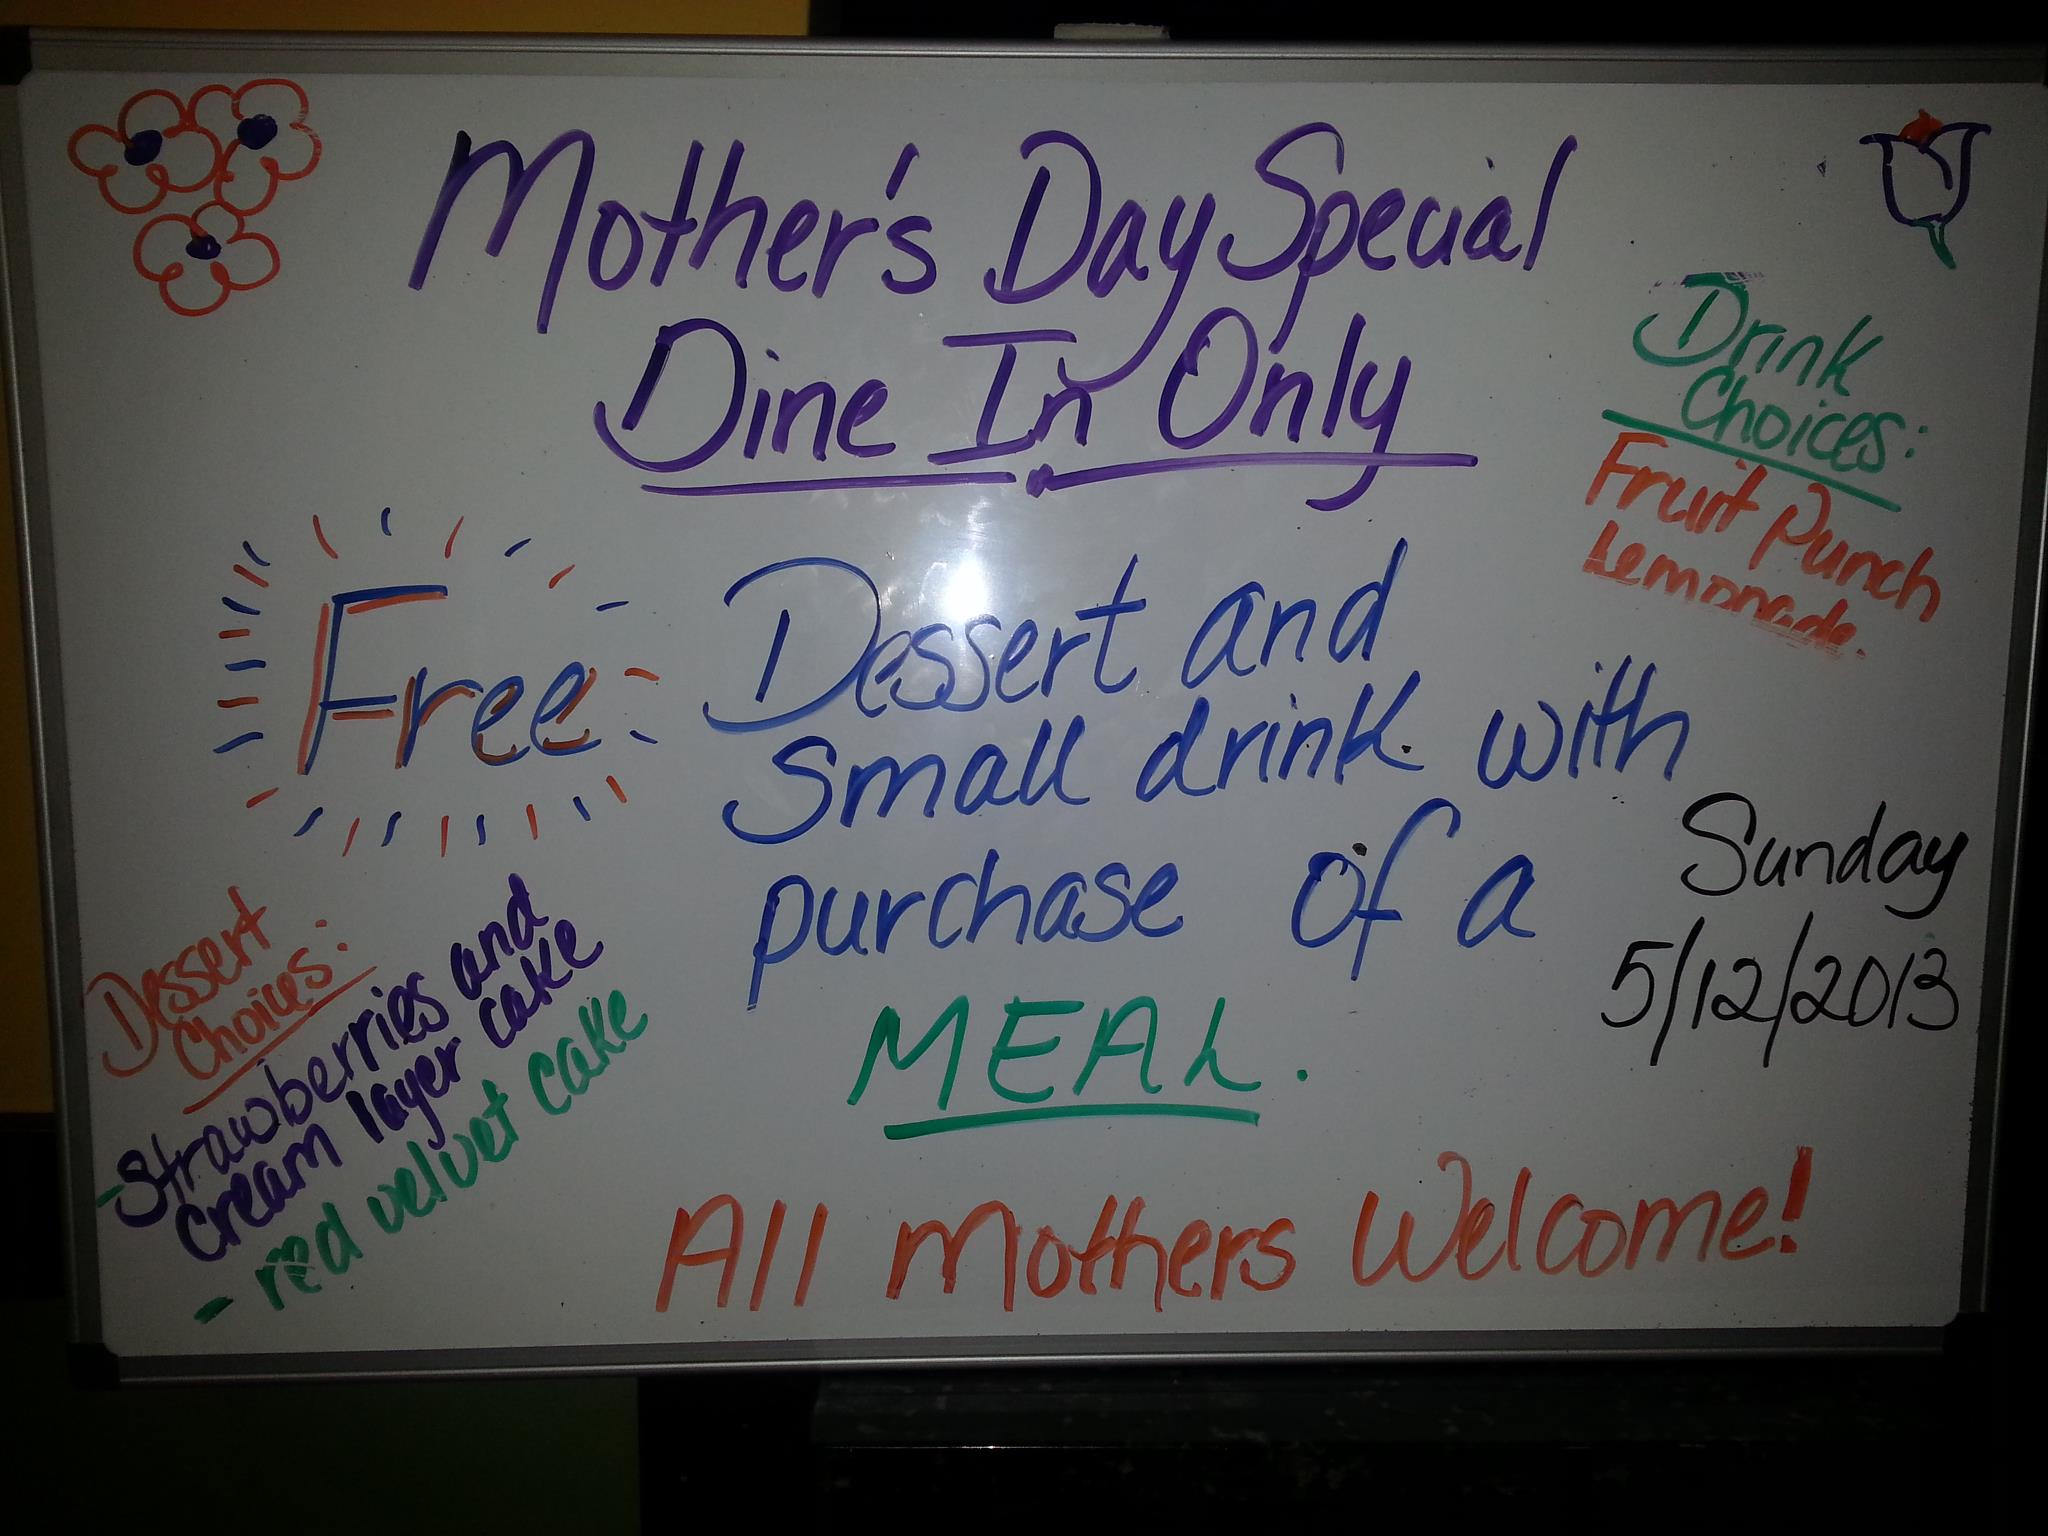 Mother's Day Special
Dine In Only
Drink
Choices:
Fruit Punch
Lemonade.
Free
Dessert and
Small drink with
purchase of a
MEAL.
Sunday
5/12/2013
Dessert
Choices:
- Strawberries and
cream layer cake
- red velvet cake
All Mothers Welcome!